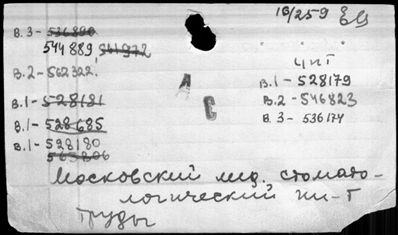 16/259
В.3 - 536890
544889, 541972
В.2 - 562322.
В.1 - 528181
В.1 - 528685
В.1 - 528180
563806
ЧИТ
В.1 - 528179
В.2 - 546823
В.3 - 536174
А
С
Московский мед. стомато-
логический ин-т
Труды